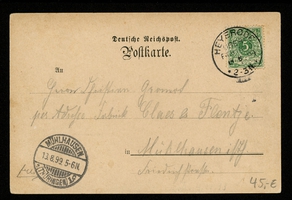 Deutsche Reichspost.
Postkarte.
HEYERODE
5
* 2-3N
An
Herrn
per Adresse Fabrik Claes & Flentje
in Mühlhausen i/Th
MÜHLHAUSEN
13.8.99.5-6N.
(THÜRINGEN)
45,-€